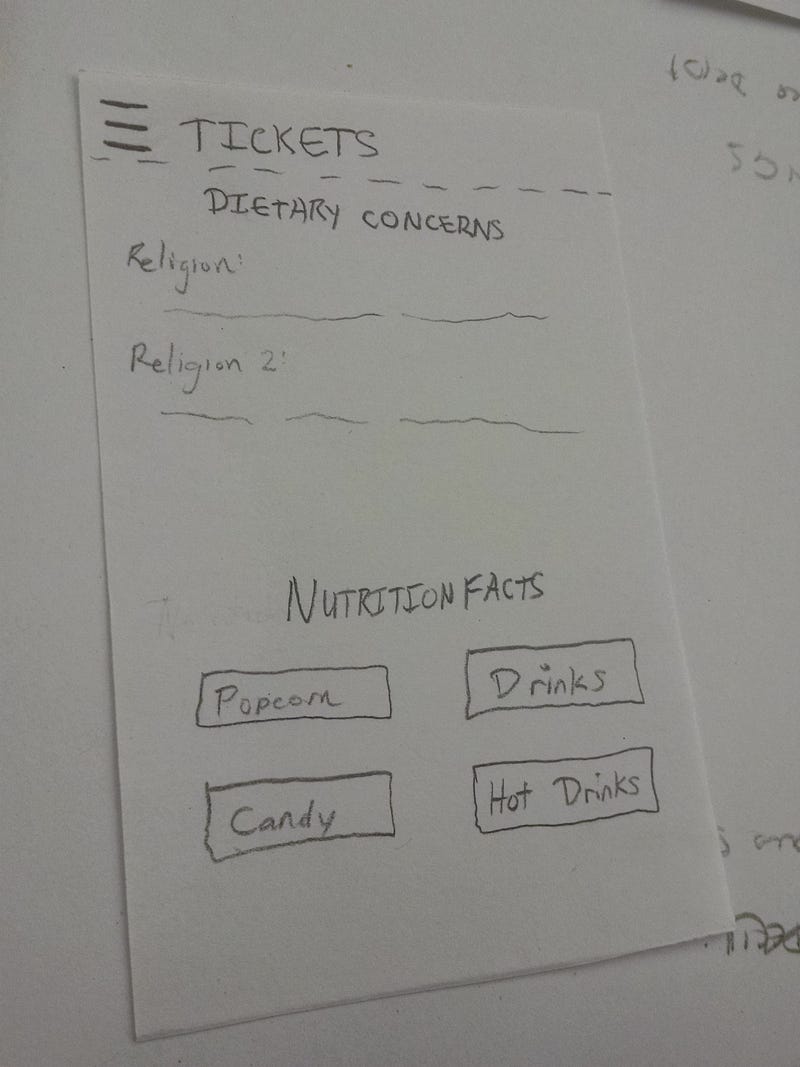 TICKETS
DIETARY CONCERNS
Religion:
Religion 2:
NUTRITION FACTS
Popcorn
Drinks
Candy
Hot Drinks